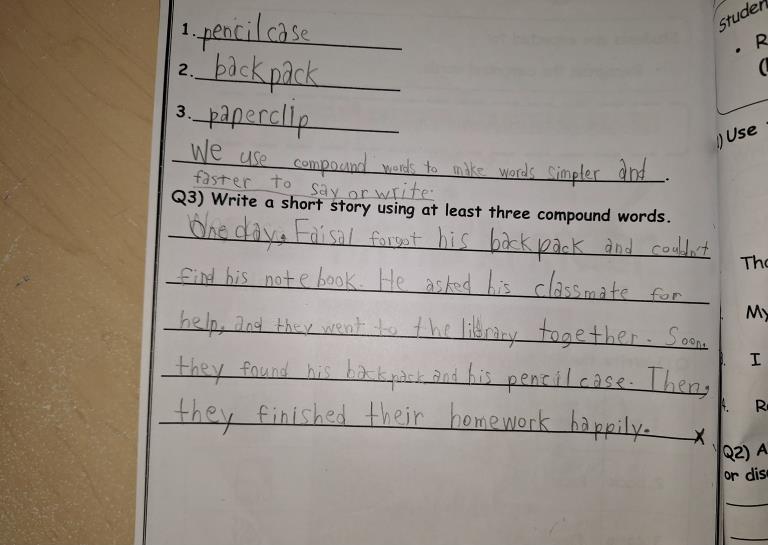 1. pencil case
2. backpack
3. paperclip
We use compound words to make words simpler and
faster to say or write.
Q3) Write a short story using at least three compound words.
One day, Faisal forgot his backpack and couldn't
find his notebook. He asked his classmate for
help, and they went to the library together. Soon,
they found his backpack and his pencil case. Then,
they finished their homework happily.
x
Studen
• R
(
) Use
Tho
My
I
Re
Q2) A
or dis